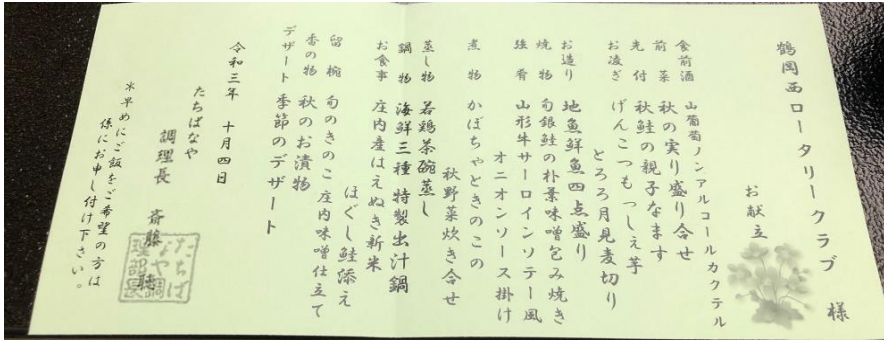 鶴岡西ロータリークラブ 様
お献立
食前酒 山葡萄ノンアルコールカクテル
前菜 秋の実り盛り合せ
先付 秋鮭の親子なます
お凌ぎ げんこつもっしぇ芋
とろろ月見麦切り
お造り 地魚鮮魚四点盛り
焼物 旬銀鮭の朴葉味噌包み焼き
強肴 山形牛サーロインソテー風
オニオンソース掛け
煮物 かぼちゃときのこの
秋野菜炊き合せ
蒸し物 若鶏茶碗蒸し
鍋物 海鮮三種 特製出汁鍋
お食事 庄内産はえぬき新米
ほぐし鮭添え
留椀 旬のきのこ 庄内味噌仕立て
香の物 秋のお漬物
デザート 季節のデザート
令和三年 十月四日
たちばなや
調理長 斎藤 聴
たちばなや調理部長
※早めにご飯をご希望の方は
係にお申し付け下さい。